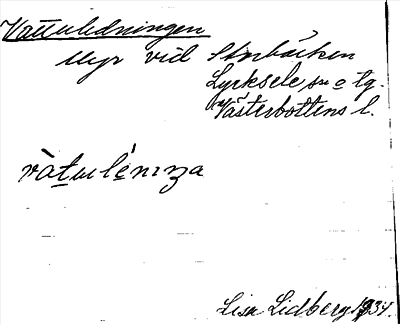 Vattuledningen
Myr vid Storbäcken
Lycksele sn o tg.
Västerbottens l.
vàtulénıŋa
Lisa Lidberg 1934.